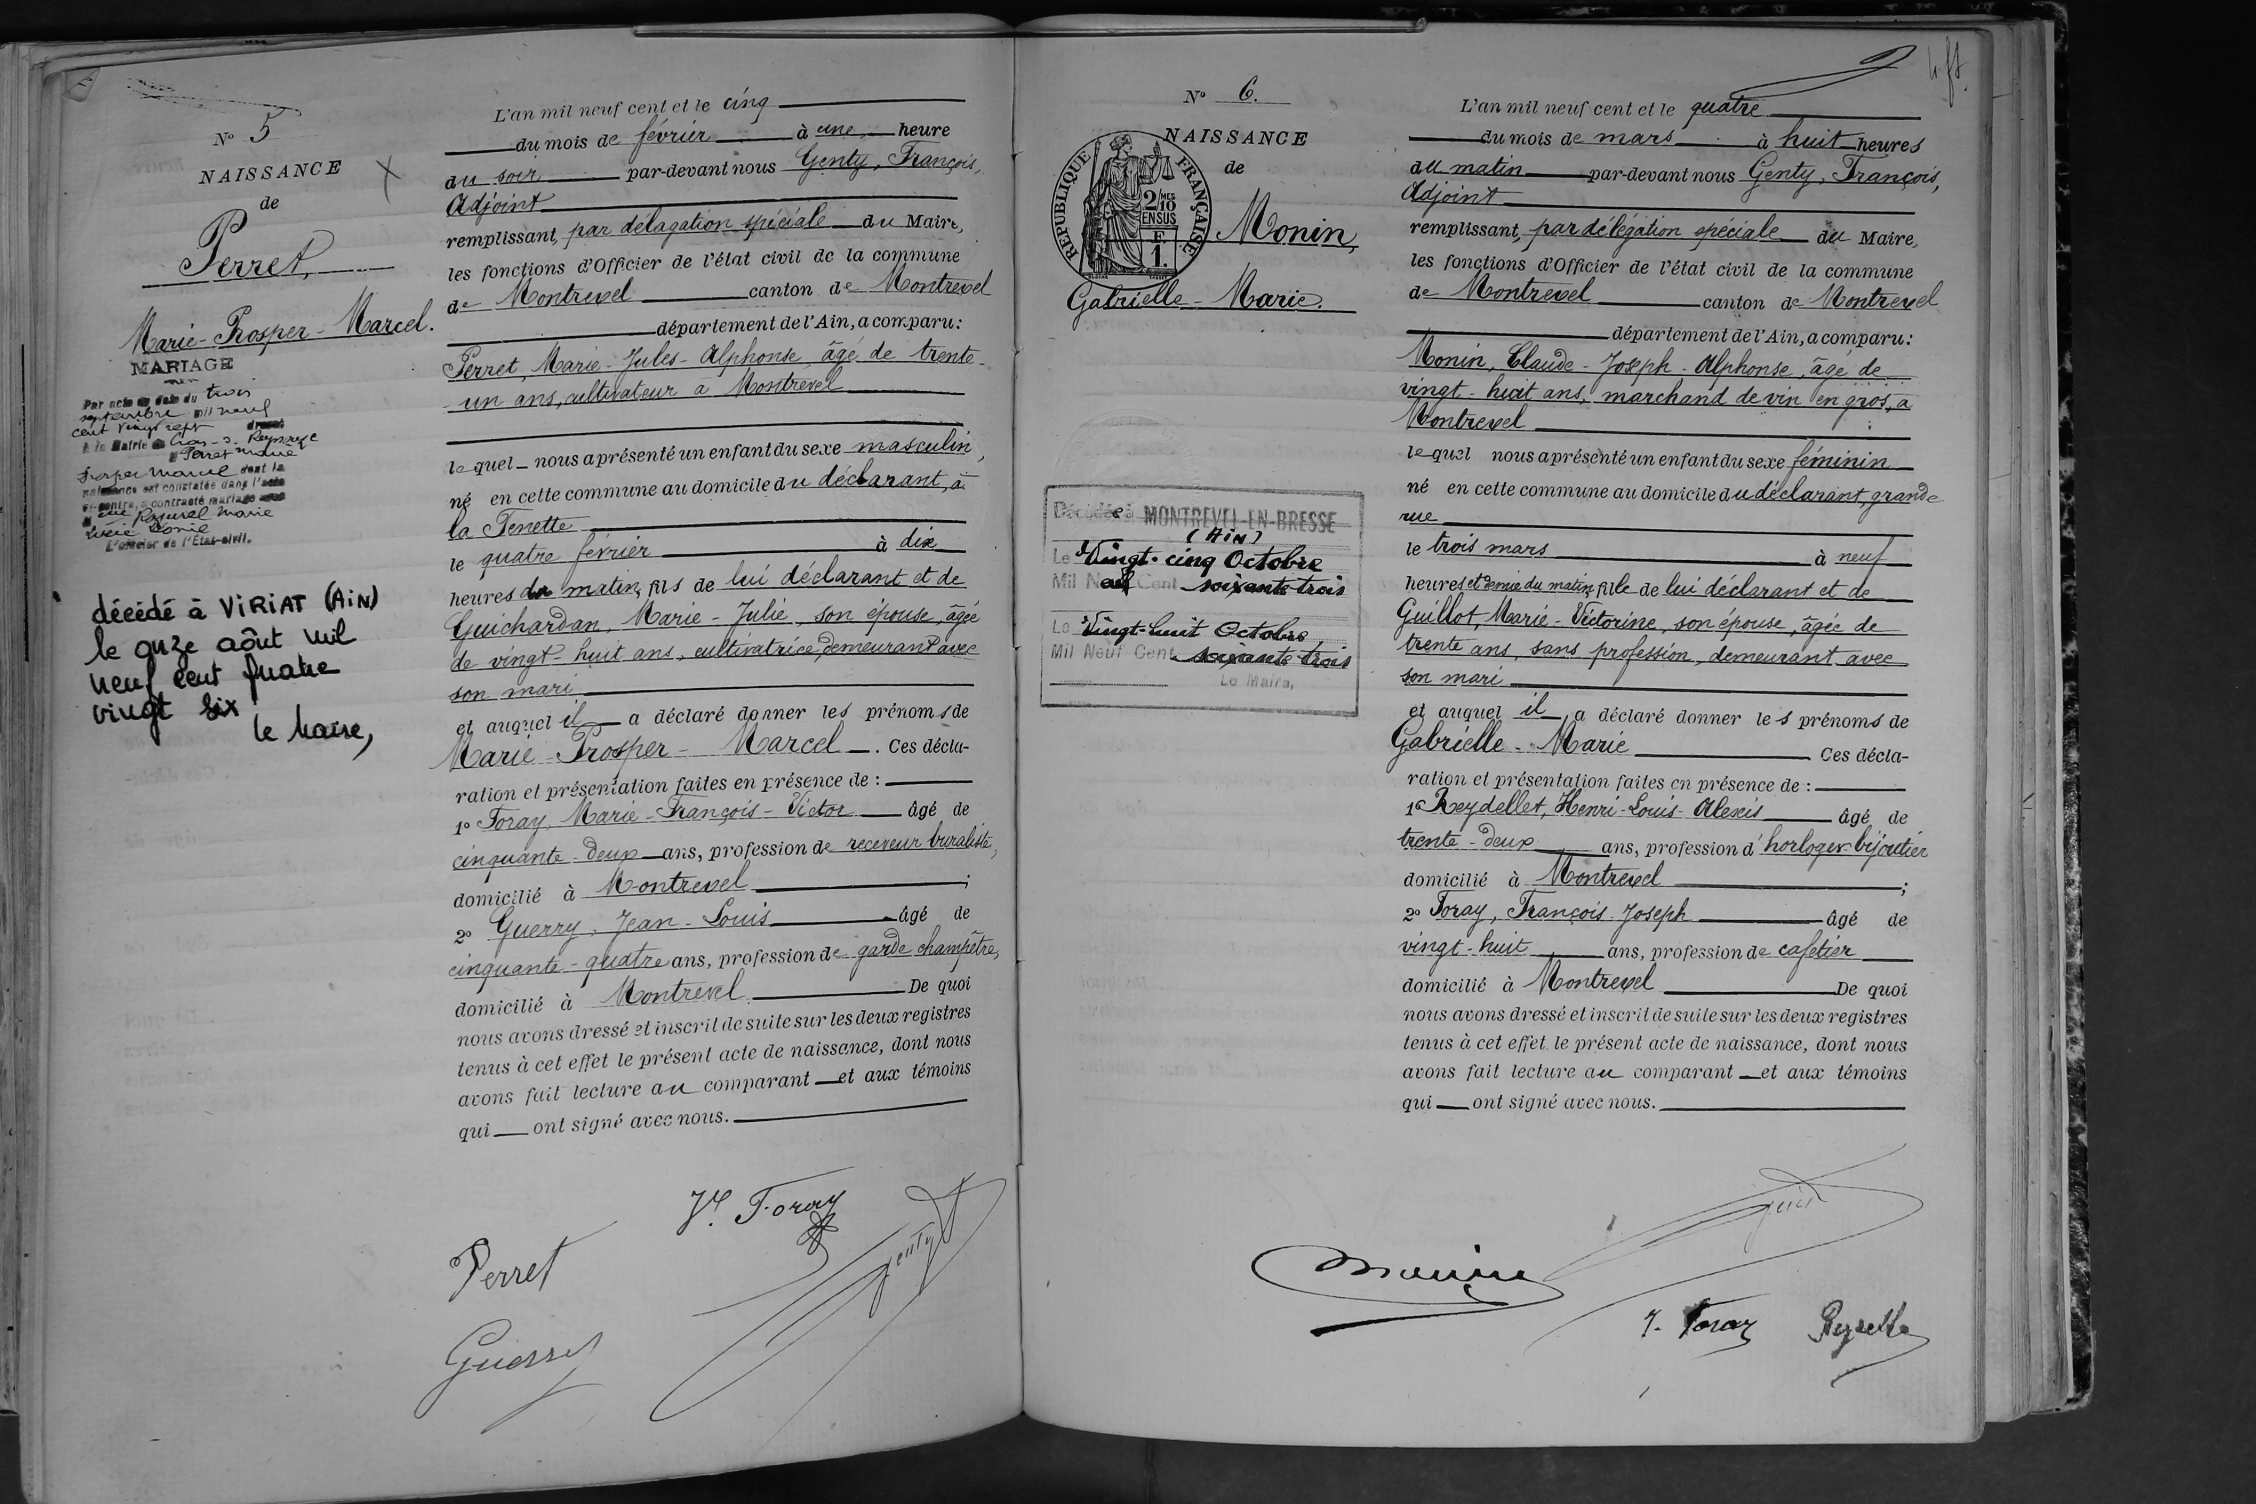 N° 5
NAISSANCE
de
Perret,
Marie-Prosper-Marcel.
MARIAGE
Par acte en date du trois
septembre mil neuf
cent vingt sept dressé
à la Mairie de Cras-s. Reyssouze
Perret Marie
Prosper Marcel dont la
naissance est constatée dans l'acte
ci-contre, a contracté mariage avec
Marie
Lucie
L'officier de l'État-civil.
décédé à VIRIAT (AiN)
le onze aôut mil
neuf cent quatre
vingt six
le Maire,
L'an mil neuf cent et le cinq
du mois de février à une heure
du soir par-devant nous Genty, François,
Adjoint
remplissant, par délagation spéciale du Maire,
les fonctions d'Officier de l'état civil de la commune
de Montrevel canton de Montrevel
département de l'Ain, a comparu:
Perret, Marie-Jules-Alphonse, âgé de trente-
un ans, cultivateur à Montrevel
lequel nous a présenté un enfant du sexe masculin,
né en cette commune au domicile du déclarant, à
la Tenette
le quatre février à dix
heures du matin, fils de lui déclarant et de
Guichardan, Marie-Julie, son épouse, âgée
de vingt-huit ans, cultivatrice, demeurant avec
son mari
et auquel il a déclaré donner les prénoms de
Marie-Prosper-Marcel. Ces décla-
ration et présentation faites en présence de :
1° Foray, Marie-François-Victor âgé de
cinquante-deux ans, profession de receveur buraliste,
domicilié à Montrevel ;
2° Guerry, Jean-Louis âgé de
cinquante-quatre ans, profession de garde champêtre,
domicilié à Montrevel. De quoi
nous avons dressé et inscrit de suite sur les deux registres
tenus à cet effet le présent acte de naissance, dont nous
avons fait lecture au comparant et aux témoins
qui ont signé avec nous.
Vr. Foray
Perret
Genty
Guerry
N° 6.
NAISSANCE
de
REPUBLIQUE FRANÇAISE
2/10 MES
EN SUS
F.
1.
Monin,
Gabrielle-Marie.
Décédée à MONTREVEL-EN-BRESSE
(AiN)
Le Vingt-cinq Octobre
Mil Neuf Cent soixante trois
Le Vingt-huit Octobre
Mil Neuf Cent soixante trois
Le Maire,
L'an mil neuf cent et le quatre
du mois de mars à huit heures
du matin par-devant nous Genty, François,
Adjoint
remplissant, par délégation spéciale du Maire,
les fonctions d'Officier de l'état civil de la commune
de Montrevel canton de Montrevel
département de l'Ain, a comparu:
Monin, Claude-Joseph-Alphonse, âgé de
vingt-huit ans, marchand de vin en gros, à
Montrevel
lequel nous a présenté un enfant du sexe féminin
né en cette commune au domicile du déclarant, grande
rue
le trois mars à neuf
heures et demie du matin, fille de lui déclarant et de
Guillot, Marie-Victorine, son épouse, âgée de
trente ans, sans profession, demeurant avec
son mari
et auquel il a déclaré donner les prénoms de
Gabrielle-Marie Ces décla-
ration et présentation faites en présence de :
1° Reydellet, Henri-Louis-Alexis âgé de
trente-deux ans, profession d'horloger-bijoutier
domicilié à Montrevel ;
2° Foray, François-Joseph âgé de
vingt-huit ans, profession de cafetier
domicilié à Montrevel De quoi
nous avons dressé et inscrit de suite sur les deux registres
tenus à cet effet le présent acte de naissance, dont nous
avons fait lecture au comparant et aux témoins
qui ont signé avec nous.
Monin
J. Foray